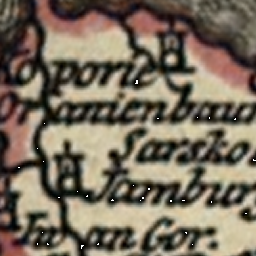 Koporie
Oranienbaum
Sarsko
Jamburg
Iwan Gor.